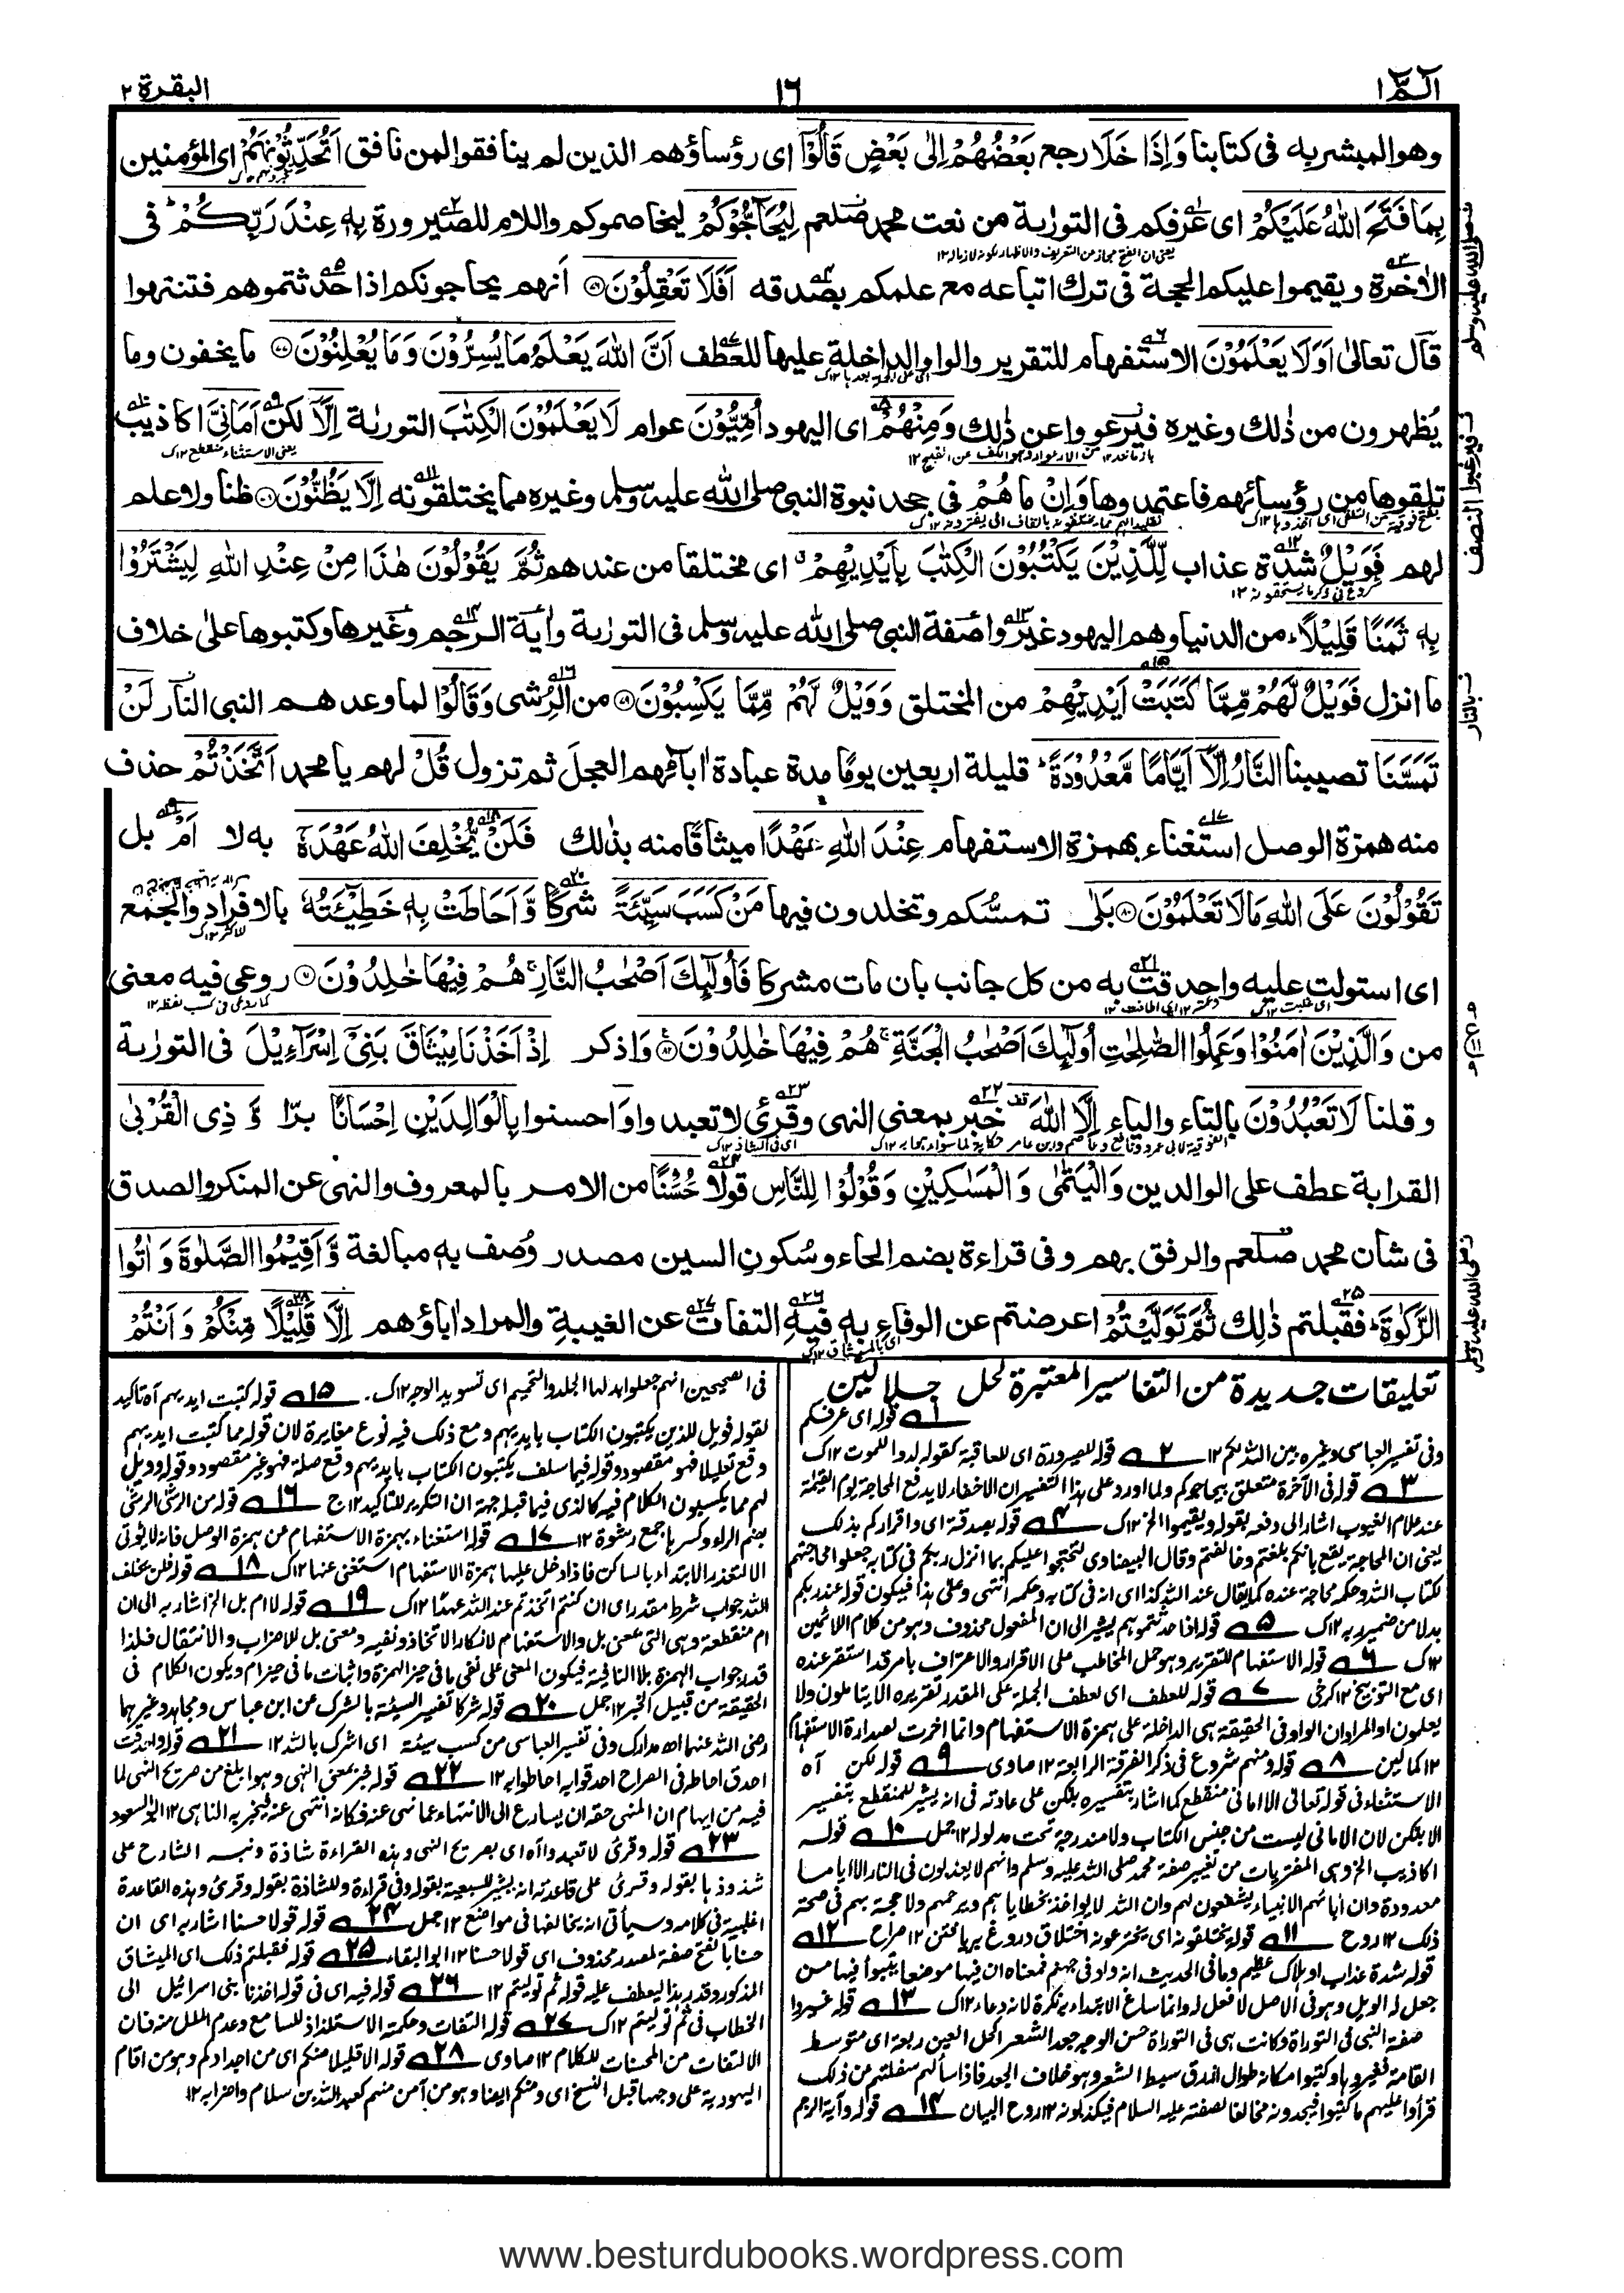 الٓمّٓ ١
١٦
البقرة ٢
وهو المبشر به فى كتابنا وَاِذَا خَلَا رجع بَعْضُهُمْ اِلٰى بَعْضٍ قَالُوْٓا اى رؤساؤهم الذين لم ينافقوا لمن نافق اَتُحَدِّثُوْنَهُمْ اى المؤمنين
بِمَا فَتَحَ اللّٰهُ عَلَيْكُمْ اى عرفكم فى التورٰىة من نعت محمد صلعم لِيُحَآجُّوْكُمْ ليخاصموكم واللام للصيرورة بِهٖ عِنْدَ رَبِّكُمْ ط فى
الاٰخرة ويقيموا عليكم الحجة فى ترك اتباعه مع علمكم بصدقه اَفَلَا تَعْقِلُوْنَ انهم يحاجونكم اذا حدثتموهم فتنتهوا
قال تعالىٰ اَوَلَا يَعْلَمُوْنَ الاستفهام للتقرير والواو الداخلة عليها للعطف اَنَّ اللّٰهَ يَعْلَمُ مَا يُسِرُّوْنَ وَمَا يُعْلِنُوْنَ ما يخفون وما
يُظهرون من ذٰلك وغيره فيرعووا عن ذٰلك وَمِنْهُمْ اى اليهود اُمِّيُّوْنَ عوام لَا يَعْلَمُوْنَ الْكِتٰبَ التورٰىة اِلَّآ لكن اَمَانِيَّ اكاذيب
تلقوها من رؤسائهم فاعتمدوها وَاِنْ ما هُمْ فى جحد نبوة النبى صلى الله عليه وسلم وغيره مما يختلقونه اِلَّا يَظُنُّوْنَ ظنا ولا علم
لهم فَوَيْلٌ شدة عذاب لِّلَّذِيْنَ يَكْتُبُوْنَ الْكِتٰبَ بِاَيْدِيْهِمْ اى مختلقا من عندهم ثُمَّ يَقُوْلُوْنَ هٰذَا مِنْ عِنْدِ اللّٰهِ لِيَشْتَرُوْا
بِهٖ ثَمَنًا قَلِيْلًا من الدنيا وهم اليهود غيروا صفة النبى صلى الله عليه وسلم فى التورٰىة واٰية الرجم وغيرها وكتبوها علىٰ خلاف
ما انزل فَوَيْلٌ لَّهُمْ مِّمَّا كَتَبَتْ اَيْدِيْهِمْ من المختلق وَوَيْلٌ لَّهُمْ مِّمَّا يَكْسِبُوْنَ من الرُشى وَقَالُوْا لما وعدهم النبى النار لَنْ
تَمَسَّنَا تصيبنا النَّارُ اِلَّآ اَيَّامًا مَّعْدُوْدَةً ط قليلة اربعين يومًا مدة عبادة اٰبائهم العجلَ ثم تزول قُلْ لهم يا محمد اَتَّخَذْتُمْ حذف
منه همزة الوصل استغناء بهمزة الاستفهام عِنْدَ اللّٰهِ عَهْدًا ميثاقًا منه بذٰلك فَلَنْ يُّخْلِفَ اللّٰهُ عَهْدَهٗٓ به لا اَمْ بل
تَقُوْلُوْنَ عَلَى اللّٰهِ مَا لَا تَعْلَمُوْنَ بَلٰى تمسّكم وتخلدون فيها مَنْ كَسَبَ سَيِّئَةً شركًا وَّاَحَاطَتْ بِهٖ خَطِيْٓئَتُهٗ بالافراد والجمع
اى استولت عليه واحدقت به من كل جانب بان مات مشركا فَاُولٰٓئِكَ اَصْحٰبُ النَّارِ هُمْ فِيْهَا خٰلِدُوْنَ روعى فيه معنى
من وَالَّذِيْنَ اٰمَنُوْا وَعَمِلُوا الصّٰلِحٰتِ اُولٰٓئِكَ اَصْحٰبُ الْجَنَّةِ هُمْ فِيْهَا خٰلِدُوْنَ وَاذكر اِذْ اَخَذْنَا مِيْثَاقَ بَنِيْٓ اِسْرَآءِيْلَ فى التورٰىة
وقلنا لَا تَعْبُدُوْنَ بالتاء والياء اِلَّا اللّٰهَ خبر بمعنى النهى وقُرِئَ لا تعبدوا وَاحسنوا بِالْوَالِدَيْنِ اِحْسَانًا برّا وَّ ذِى الْقُرْبٰى
القرابة عطف على الوالدين وَالْيَتٰمٰى وَالْمَسٰكِيْنِ وَقُوْلُوْا لِلنَّاسِ قولا حُسْنًا من الامر بالمعروف والنهى عن المنكر والصدق
فى شان محمد صلعم والرفق بهم وفى قراءة بضم الحاء وسُكونِ السين مصدر وُصف به مبالغة وَّاَقِيْمُوا الصَّلٰوةَ وَاٰتُوا
الزَّكٰوةَ ط فقبلتم ذٰلك ثُمَّ تَوَلَّيْتُمْ اعرضتم عن الوفاء به فيه التفات عن الغيبة والمراد اٰباؤهم اِلَّا قَلِيْلًا مِّنْكُمْ وَاَنْتُمْ
تعليقات جديدة من التفاسير المعتبرة لحل جلالين
١ قوله اى عرفكم
وفى تفسير العباسى وغيره بين الله لكم ١٢ ٢ قوله للصيرورة اى للعاقبة كقوله لدوا للموت ١٢ك
٣ قوله فى الآخرة متعلق بيحاجوكم ولما اورد على هذا التفسير ان الاخفاء لا يدفع المحاجة يوم القيٰمة
عند علام الغيوب اشار الى دفعه بقوله ويقيموا الخ ١٢ك ٤ قوله بصدقه اى واقراركم بذلك
يعنى ان المحاجة يقع بانكم بلغتم وخالفتم وقال البيضاوى ليحتجوا عليكم بما انزل ربكم فى كتابه جعلوا محاجتهم
لكتاب الله وحكمه محاجة عنده كما يقال عند الله كذا اى انه فى كتابه وحكمه انتهى وعلى هذا فيكون قوله عند ربكم
بدلا من ضمير به ١٢ك ٥ قوله اذا حدثتموهم يشير الى ان المفعول محذوف وهو من كلام اللائمين
١٢ك ٦ قوله الاستفهام للتقرير وهو حمل المخاطب على الاقرار والاعتراف بامر قد استقر عنده
اى مع التوبيخ ١٢ كرخى ٧ قوله للعطف اى لعطف الجملة على المقدر تقريره الا يتاملون ولا
يعلمون او المراد ان الواو فى الحقيقة هى الداخلة على همزة الاستفهام وانما اخرت لصدارة الاستفهام
١٢ كمالين ٨ قوله ومنهم شروع فى ذكر الفرقة الرابعة ١٢ صاوى ٩ قوله لكن آه
الاستثناء فى قوله تعالى الا امانى منقطع كما اشار بتفسيره بلكن على عادته فى انه يشير للمنقطع بتفسير
الا بلكن لان الامانى ليست من جنس الكتاب ولا مندرجة تحت مدلوله ١٢ جمل ١٠ قوله
اكاذيب الخ وهى المفتريات من تغيير صفة محمد صلى الله عليه وسلم وانهم لا يعذبون فى النار الا اياما
معدودة وان آباءهم الانبياء يشفعون لهم وان الله لا يواخذ بخطاياهم ويرحمهم ولا حجة بهم فى صحة
ذلك ١٢ روح ١١ قوله يختلقونه اى يخترعونه اختلاق دروغ بربافتن ١٢ صراح ١٢
قوله شدة عذاب او هلاك عظيم وما فى الحديث انه واد فى جهنم فمعناه ان فيها موضعا يتبوأ فيها من
جعل له الويل وهو فى الاصل لا فعل له وانما ساغ الابتداء به نكرة لانه دعاء ١٢ك ١٣ قوله غيروا
صفة النبى فى التوراة وكانت هى فى التوراة حسن الوجه جعد الشعر اكحل العين ربعة اى متوسط
القامة فغيروها وكتبوا مكانه طوال ازرق سبط الشعر وهو خلاف الجعد فاذا سألهم سفلتهم من ذلك
قرأوا عليهم ما كتبوا فيجدونه مخالفا لصفته عليه السلام فيكذبونه ١٢ روح البيان ١٤ قوله وآية الرجم
فى الصحيحين انهم جعلوا بدلها الجلد والتحميم اى تسويد الوجه ١٢ك ١٥ قوله كتبت ايديهم آه تاكيد
لقوله فويل للذين يكتبون الكتاب بايديهم ومع ذلك فيه نوع مغايرة لان قوله مما كتبت ايديهم
وقع تعليلا فهو مقصود وقوله فيما سلف يكتبون الكتاب بايديهم وقع صلة فهو غير مقصود وقوله وويل
لهم مما يكسبون الكلام فيه كالذى فيما قبله جهة ان التكرير للتاكيد ١٢ج ١٦ قوله من الرشى الرشى
بضم الراء وكسرها جمع رشوة ١٢ ١٧ قوله استغناء بهمزة الاستفهام من همزة الوصل فانه لا يؤتى
الا لتعذر الابتداء بالساكن فاذا دخل عليها همزة الاستفهام استغنى عنها ١٢ك ١٨ قوله فلن يخلف
الله جواب شرط مقدر اى ان كنتم اتخذتم عند الله عهدًا ١٢ك ١٩ قوله لا ام بل الخ اشار به الى ان
ام منقطعة وهى التى بمعنى بل والاستفهام لانكار الاتخاذ ونفيه ومعنى بل للاضراب والانتقال فلذا
قدر جواب الهمزة بلا النافية فيكون المعنى على نفى ما فى حيز الهمزة واثبات ما فى حيز ام ويكون الكلام فى
الحقيقة من قبيل الخبر ١٢ جمل ٢٠ قوله شركا تفسير السيئة بالشرك من ابن عباس ومجاهد وغيرهما
رضى الله عنهما اھ مدارك وفى تفسير العباسى من كسب سيئة اى اشرك بالله ١٢ ٢١ قوله واحدقت
احدق احاط فى الصراح احدقوا به احاطوا به ١٢ ٢٢ قوله خبر بمعنى النهى وهو ابلغ من صريح النهى لما
فيه من ايهام ان المنهى حقه ان يسارع الى الانتهاء عما نهى عنه فكانه انتهى عنه فيخبر به الناهى ١٢ ابو السعود
٢٣ قوله وقرئ لا تعبدوا آه اى بصريح النهى وهذه القراءة شاذة ونبه الشارح على
شذوذها بقوله وقرئ على قاعدته انه يشير للسبعية بقوله وفى قراءة وللشاذة بقوله وقرئ وهذه القاعدة
اغلبية فى كلامه وسيأتى انه يخالفها فى مواضع ١٢ جمل ٢٤ قوله قولا حسنا اشار به اى ان
حسنا بالفتح صفة لمصدر محذوف اى قولا حسنا ١٢ ابو البقاء ٢٥ قوله فقبلتم ذلك اى الميثاق
المذكور وقدر هذا ليعطف عليه قوله ثم توليتم ١٢ ٢٦ قوله فيه اى فى قوله اخذنا بنى اسرائيل الى
الخطاب فى ثم توليتم ١٢ك ٢٧ قوله التفات وحكمته الاستلذاذ للسامع وعدم الملل منه فان
الالتفات من المحسنات للكلام ١٢ صاوى ٢٨ قوله الا قليلا منكم اى من اجدادكم وهو من اقام
اليهودية على وجهها قبل النسخ اى ومنكم ايضا وهو من آمن منهم كعبد الله بن سلام واضرابه ١٢
www.besturdubooks.wordpress.com